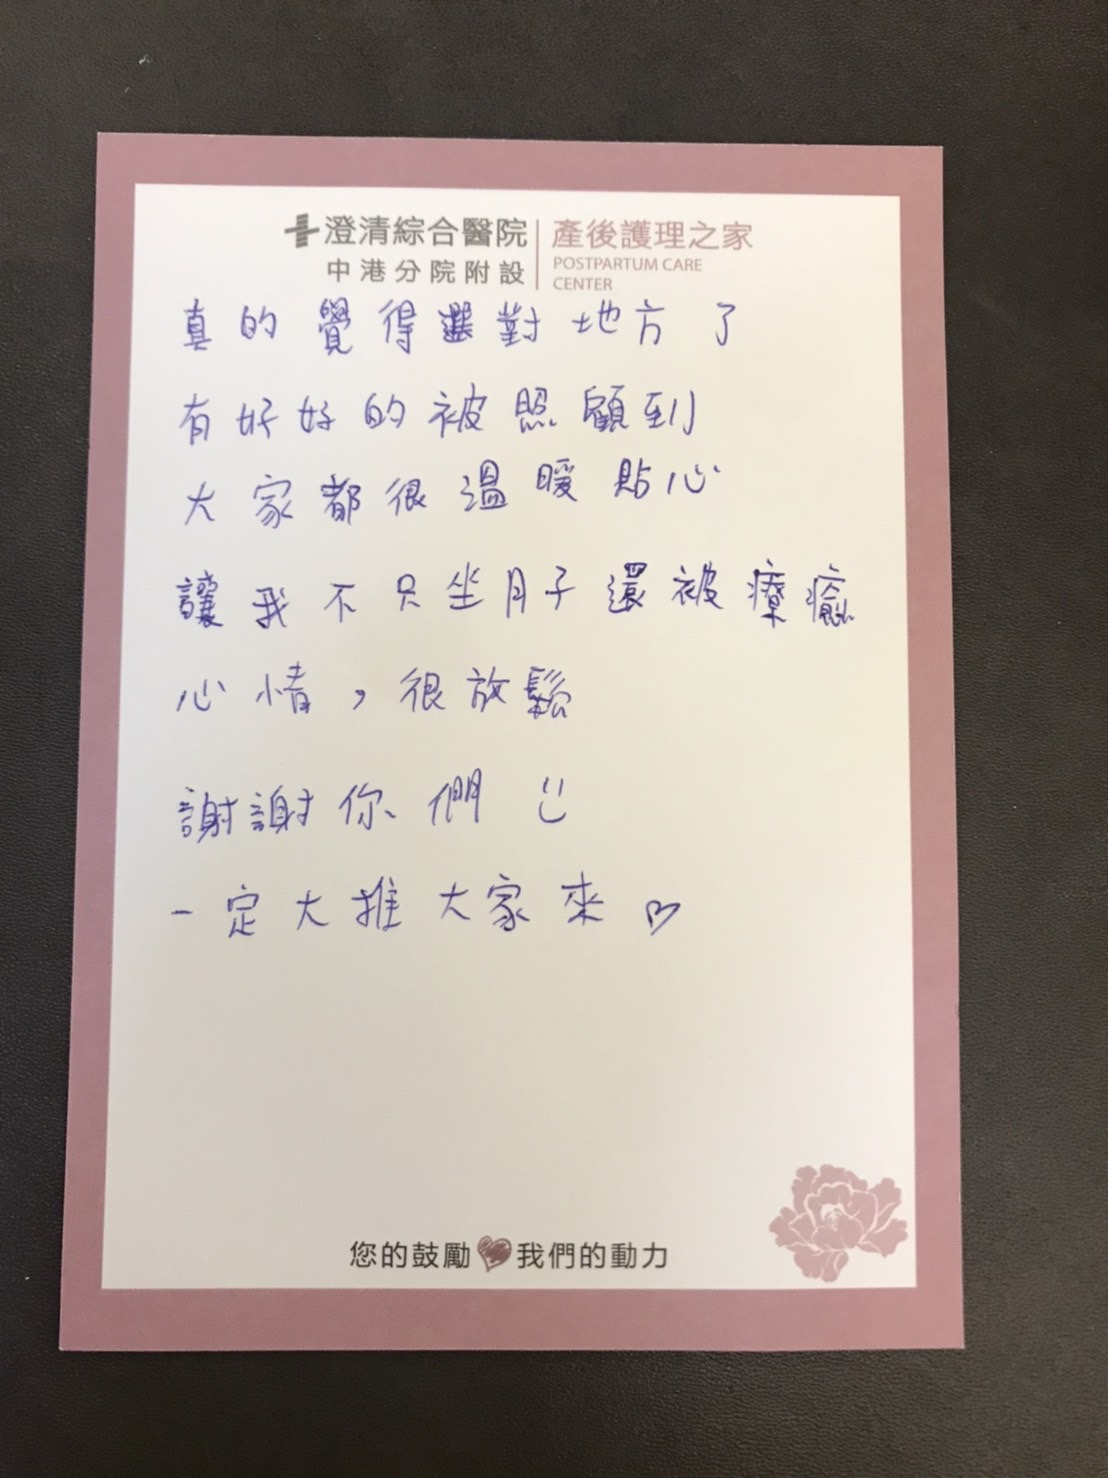 澄清綜合醫院
中港分院附設
產後護理之家
POSTPARTUM CARE
CENTER
真的覺得選對地方了
有好好的被照顧到
大家都很溫暖貼心
讓我不只坐月子還被療癒
心情，很放鬆
謝謝你們
一定大推大家來♡
您的鼓勵❤我們的動力